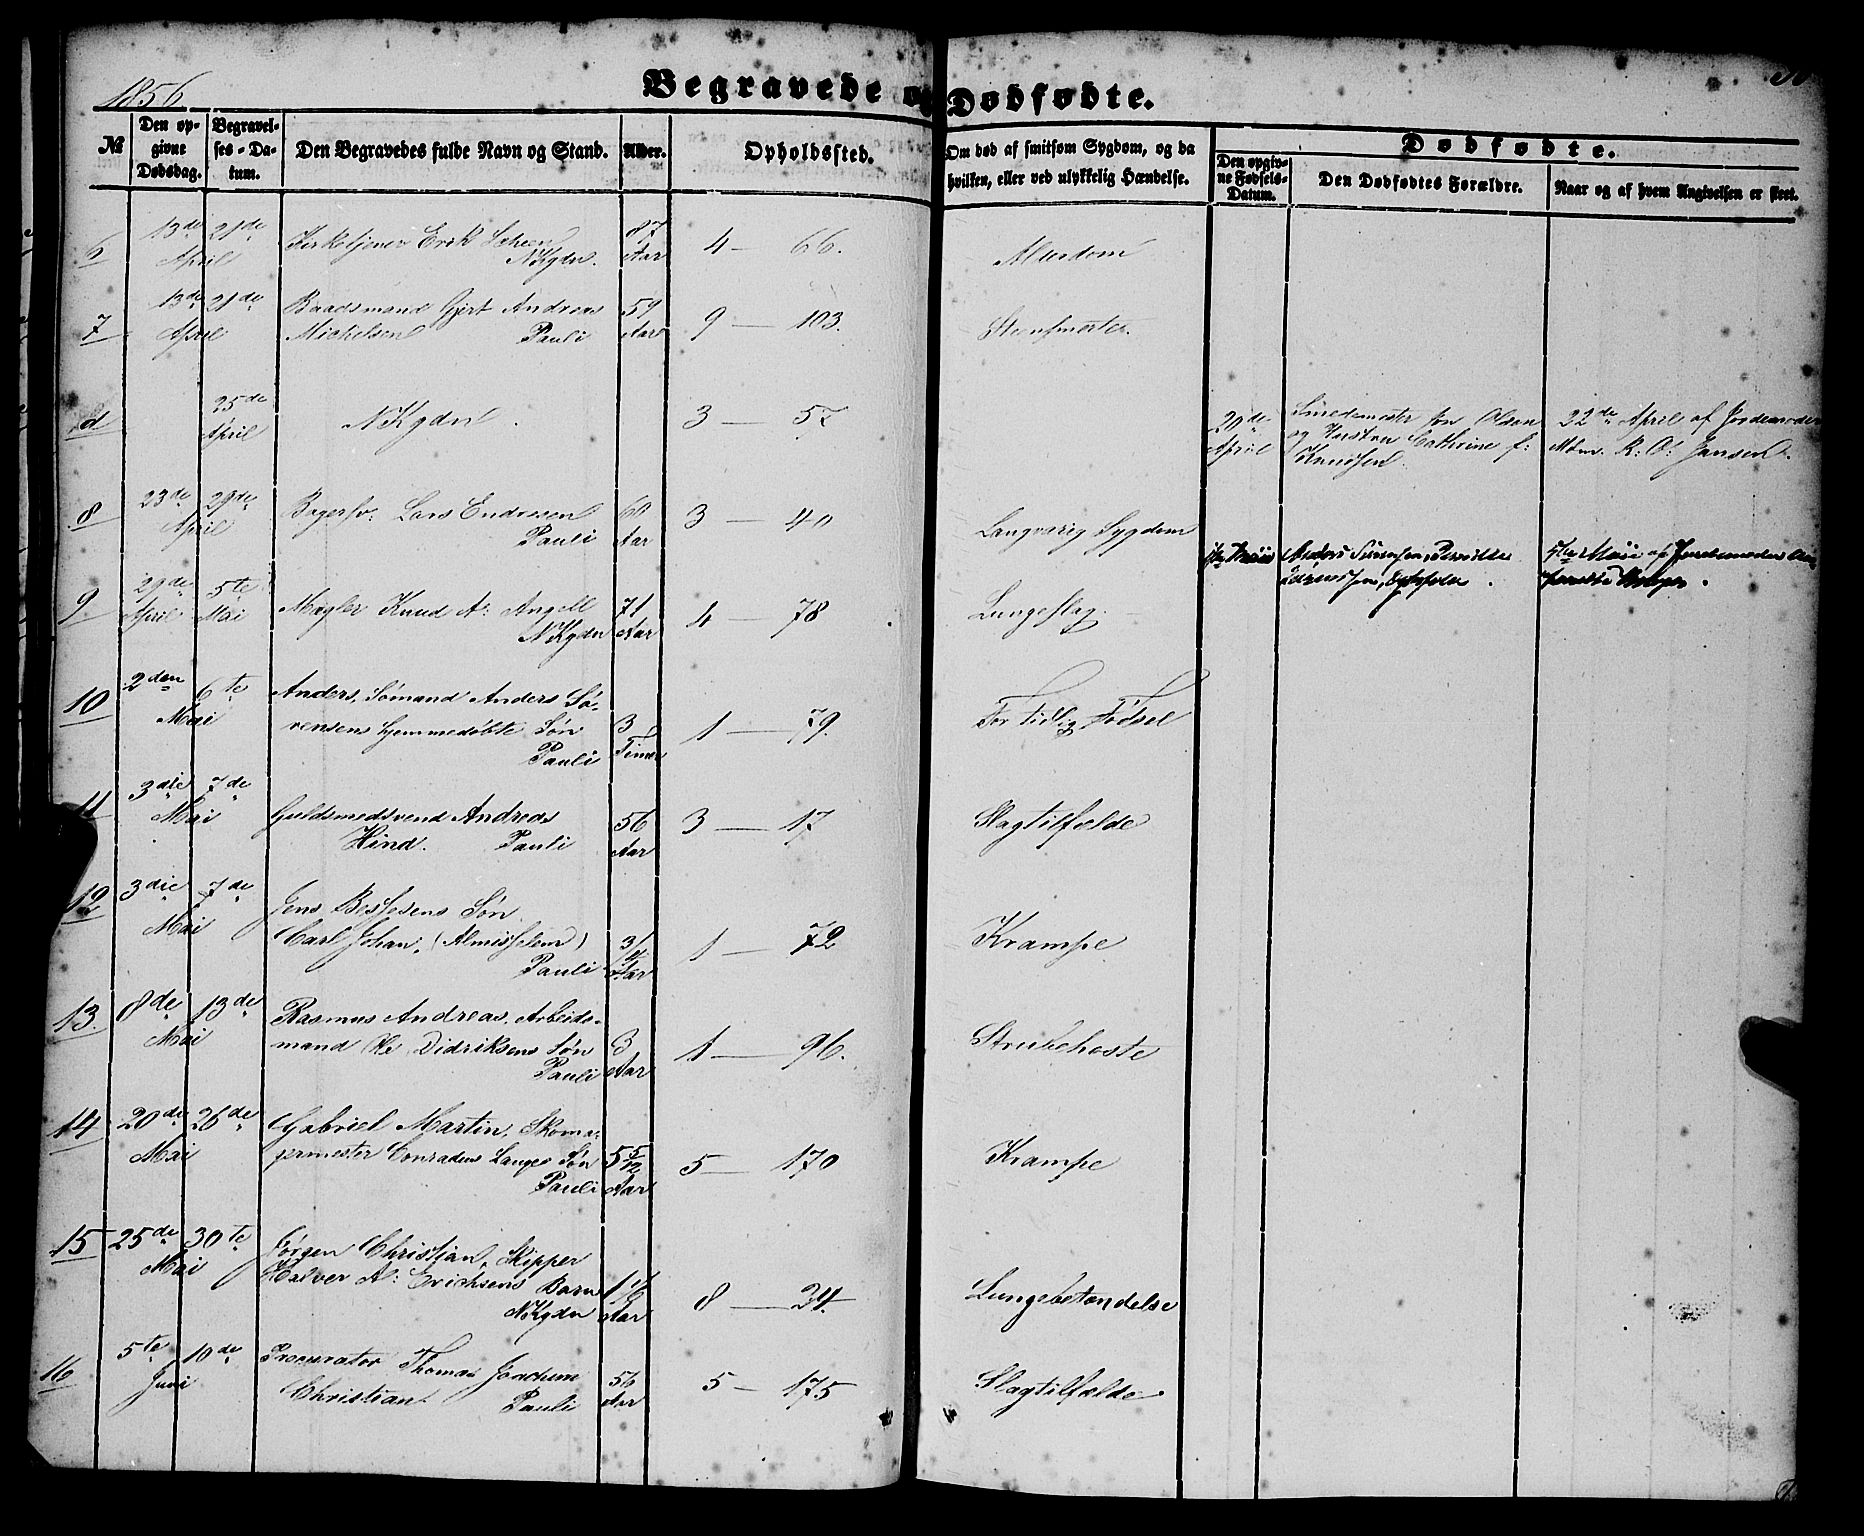 1856
Begravede og Dødfødte.
№
Den op-
givne
Dødsdag.
Begravel-
ses-Da-
tum.
Den Begravedes fulde Navn og Stand.
Alder.
Opholdssted.
Om død af smitsom Sygdom, og da
hvilken, eller ved ulykkelig Hændelse.
Dødfødte.
Den opgiv-
ne Fødsels-
Datum.
Den Dødfødtes Forældre.
Naar og af hvem Angivelsen er skeet.
6 13de 21de Kirketjener Erik 87
April NKgdn. Aar 4 — 66. Alderdom
7 13de 21de Baadsmand Gjert Andreas 59
April Michelsen Pauli Aar 9 — 103.
d 25de April NKgdn 3 — 57
20de April
Smedemester Olsen
og Hustru Cathrine f:
Knudsen.
22de April af Jordemoder
Mdm. R: O: Jansen.
8 23de 29de Lars Endresen 60
April Pauli Aar 3 — 40 Langvarig Sygdom
Mai
5te Mai af Jordemoder
9 29de 5te
April Mai Mægler Knud A: Angell 71
NKgdn Aar 4 — 78 Lungeslag.
10 2den 6te Anders, Sømand Anders Sø-
Mai rensens hjemmedøbte Søn 3
Pauli Timer 1 — 79. For tidlig Fødsel
11 3die 7de
Mai Guldsmedsvend Andreas 56
Hind. Pauli Aar 3 — 17 Slagtilfælde
12 3die 7de Jens Bessesens Søn
Mai Carl Johan, 3/4
Pauli Aar 1 — 72 Krampe
13. 8de 13de Rasmus Andreas, Arbeids-
Mai mand Ole Didriksens Søn 3
Pauli Aar 1 — 96. Strubehoste
14 20de 26de Gabriel Martin, Skoma-
Mai germester Conradus Langes Søn 5 5/12
Pauli Aar 5 — 170 Krampe
15 25de 30te Jørgen Christian, Skipper
Mai Halver A: Erichsens Barn
NKgdn Aar 8 — 34. Lungebetændelse
16 5te 10de Procurator Thomas Joachim 56
Juni Christian Pauli Aar 5 — 175 Slagtilfælde